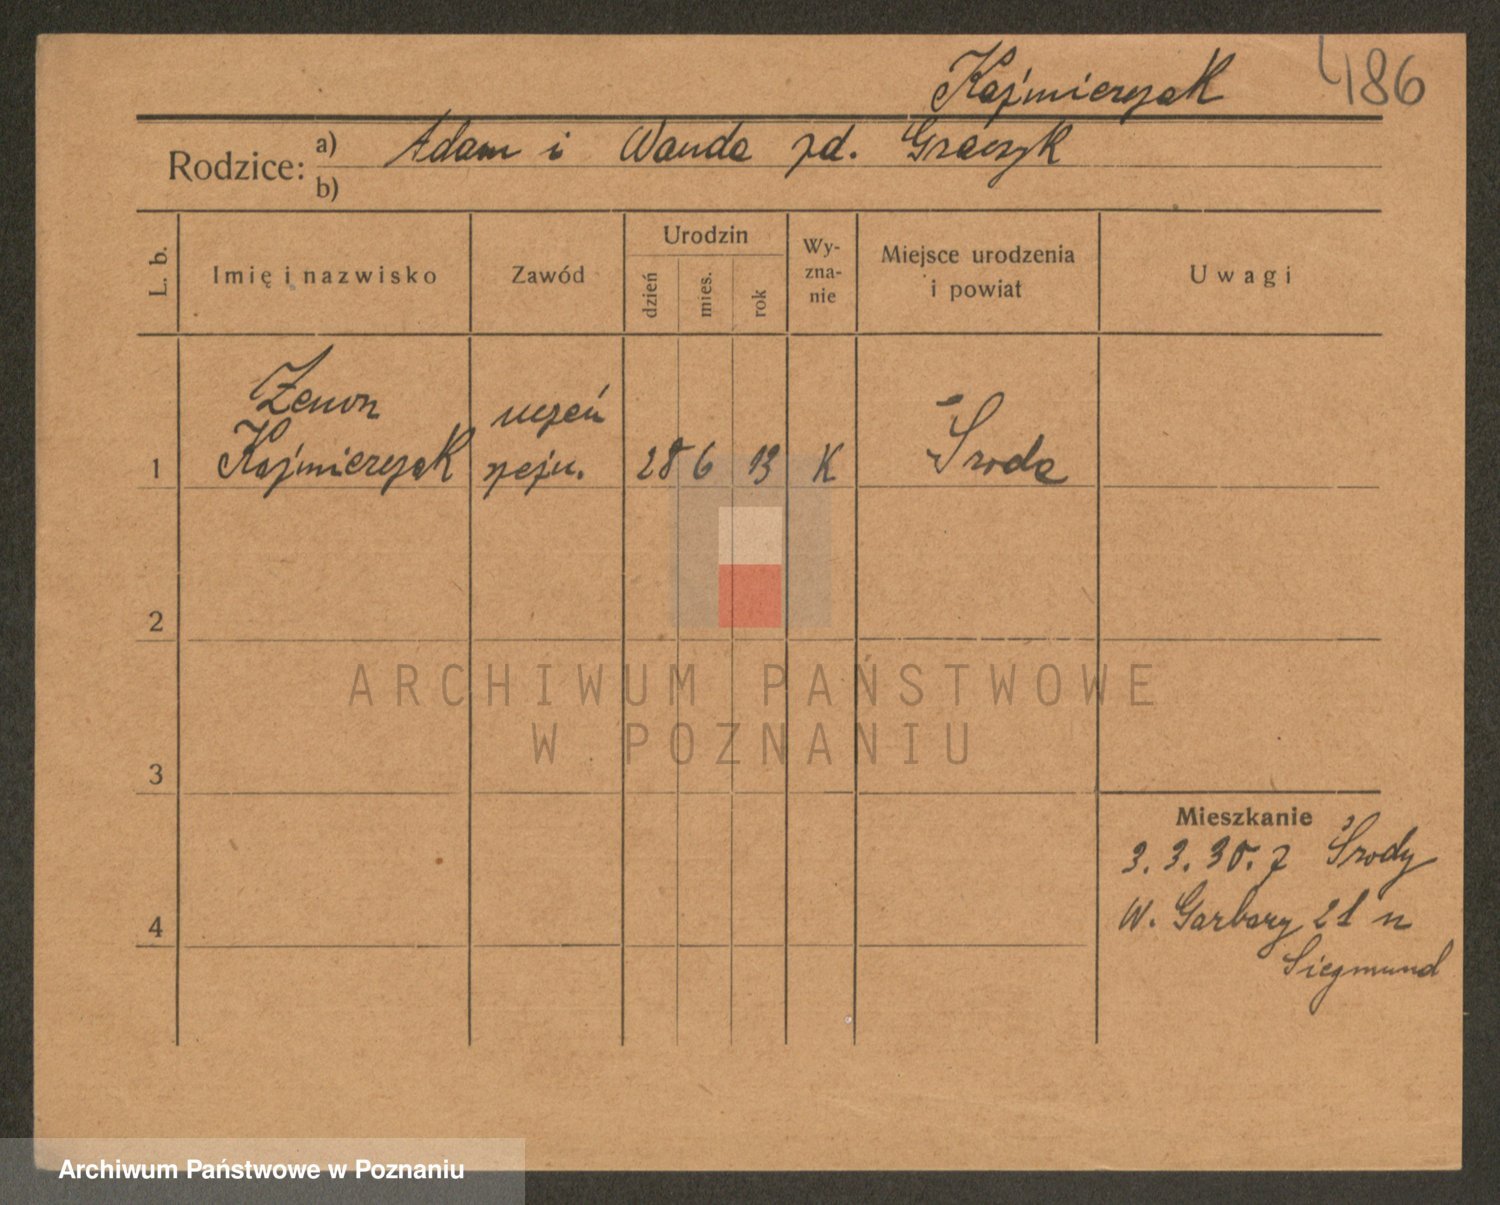 Kaźmierczak 486
Rodzice: a) Adam i Wanda zd. Graczyk
b)
L. b.
Imię i nazwisko
Zawód
Urodzin
dzień
mies.
rok
Wy-
zna-
nie
Miejsce urodzenia
i powiat
Uwagi
Zenon uczeń
1 Kaźmierczak 28 6 13 K Środa
2
3
4
Mieszkanie
3. 3. 30. z Środy
W. Garbary 21 u
Siegmund
ARCHIWUM PAŃSTWOWE
W POZNANIU
Archiwum Państwowe w Poznaniu